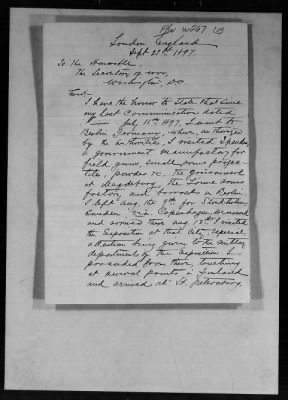 London England
Sept 23d 1897.
To the Honorable,
The Secretary of War,
Washington, D.C.
Sir:
I have the honor to state that since
my last Communication dated
July 15th 1897, I went to
Berlin Germany, where, authorized
by the authorities, I visited Spandau
a government manufactory for
field guns, small arms projec-
tile, powder &c. the gruson work
at Magdeburg, the Loewe Arms
factory and barracks in Berlin.
I left Aug. the 9th for Stockholm,
Sweden via Copenhagen Denmark
and arrived there Aug. 13th visited
the Exposition at that City, Especial
attention being given to the military
department of the Exposition. I
proceeded from there, touching
at several points in Finland
and arrived at St. Petersburg,